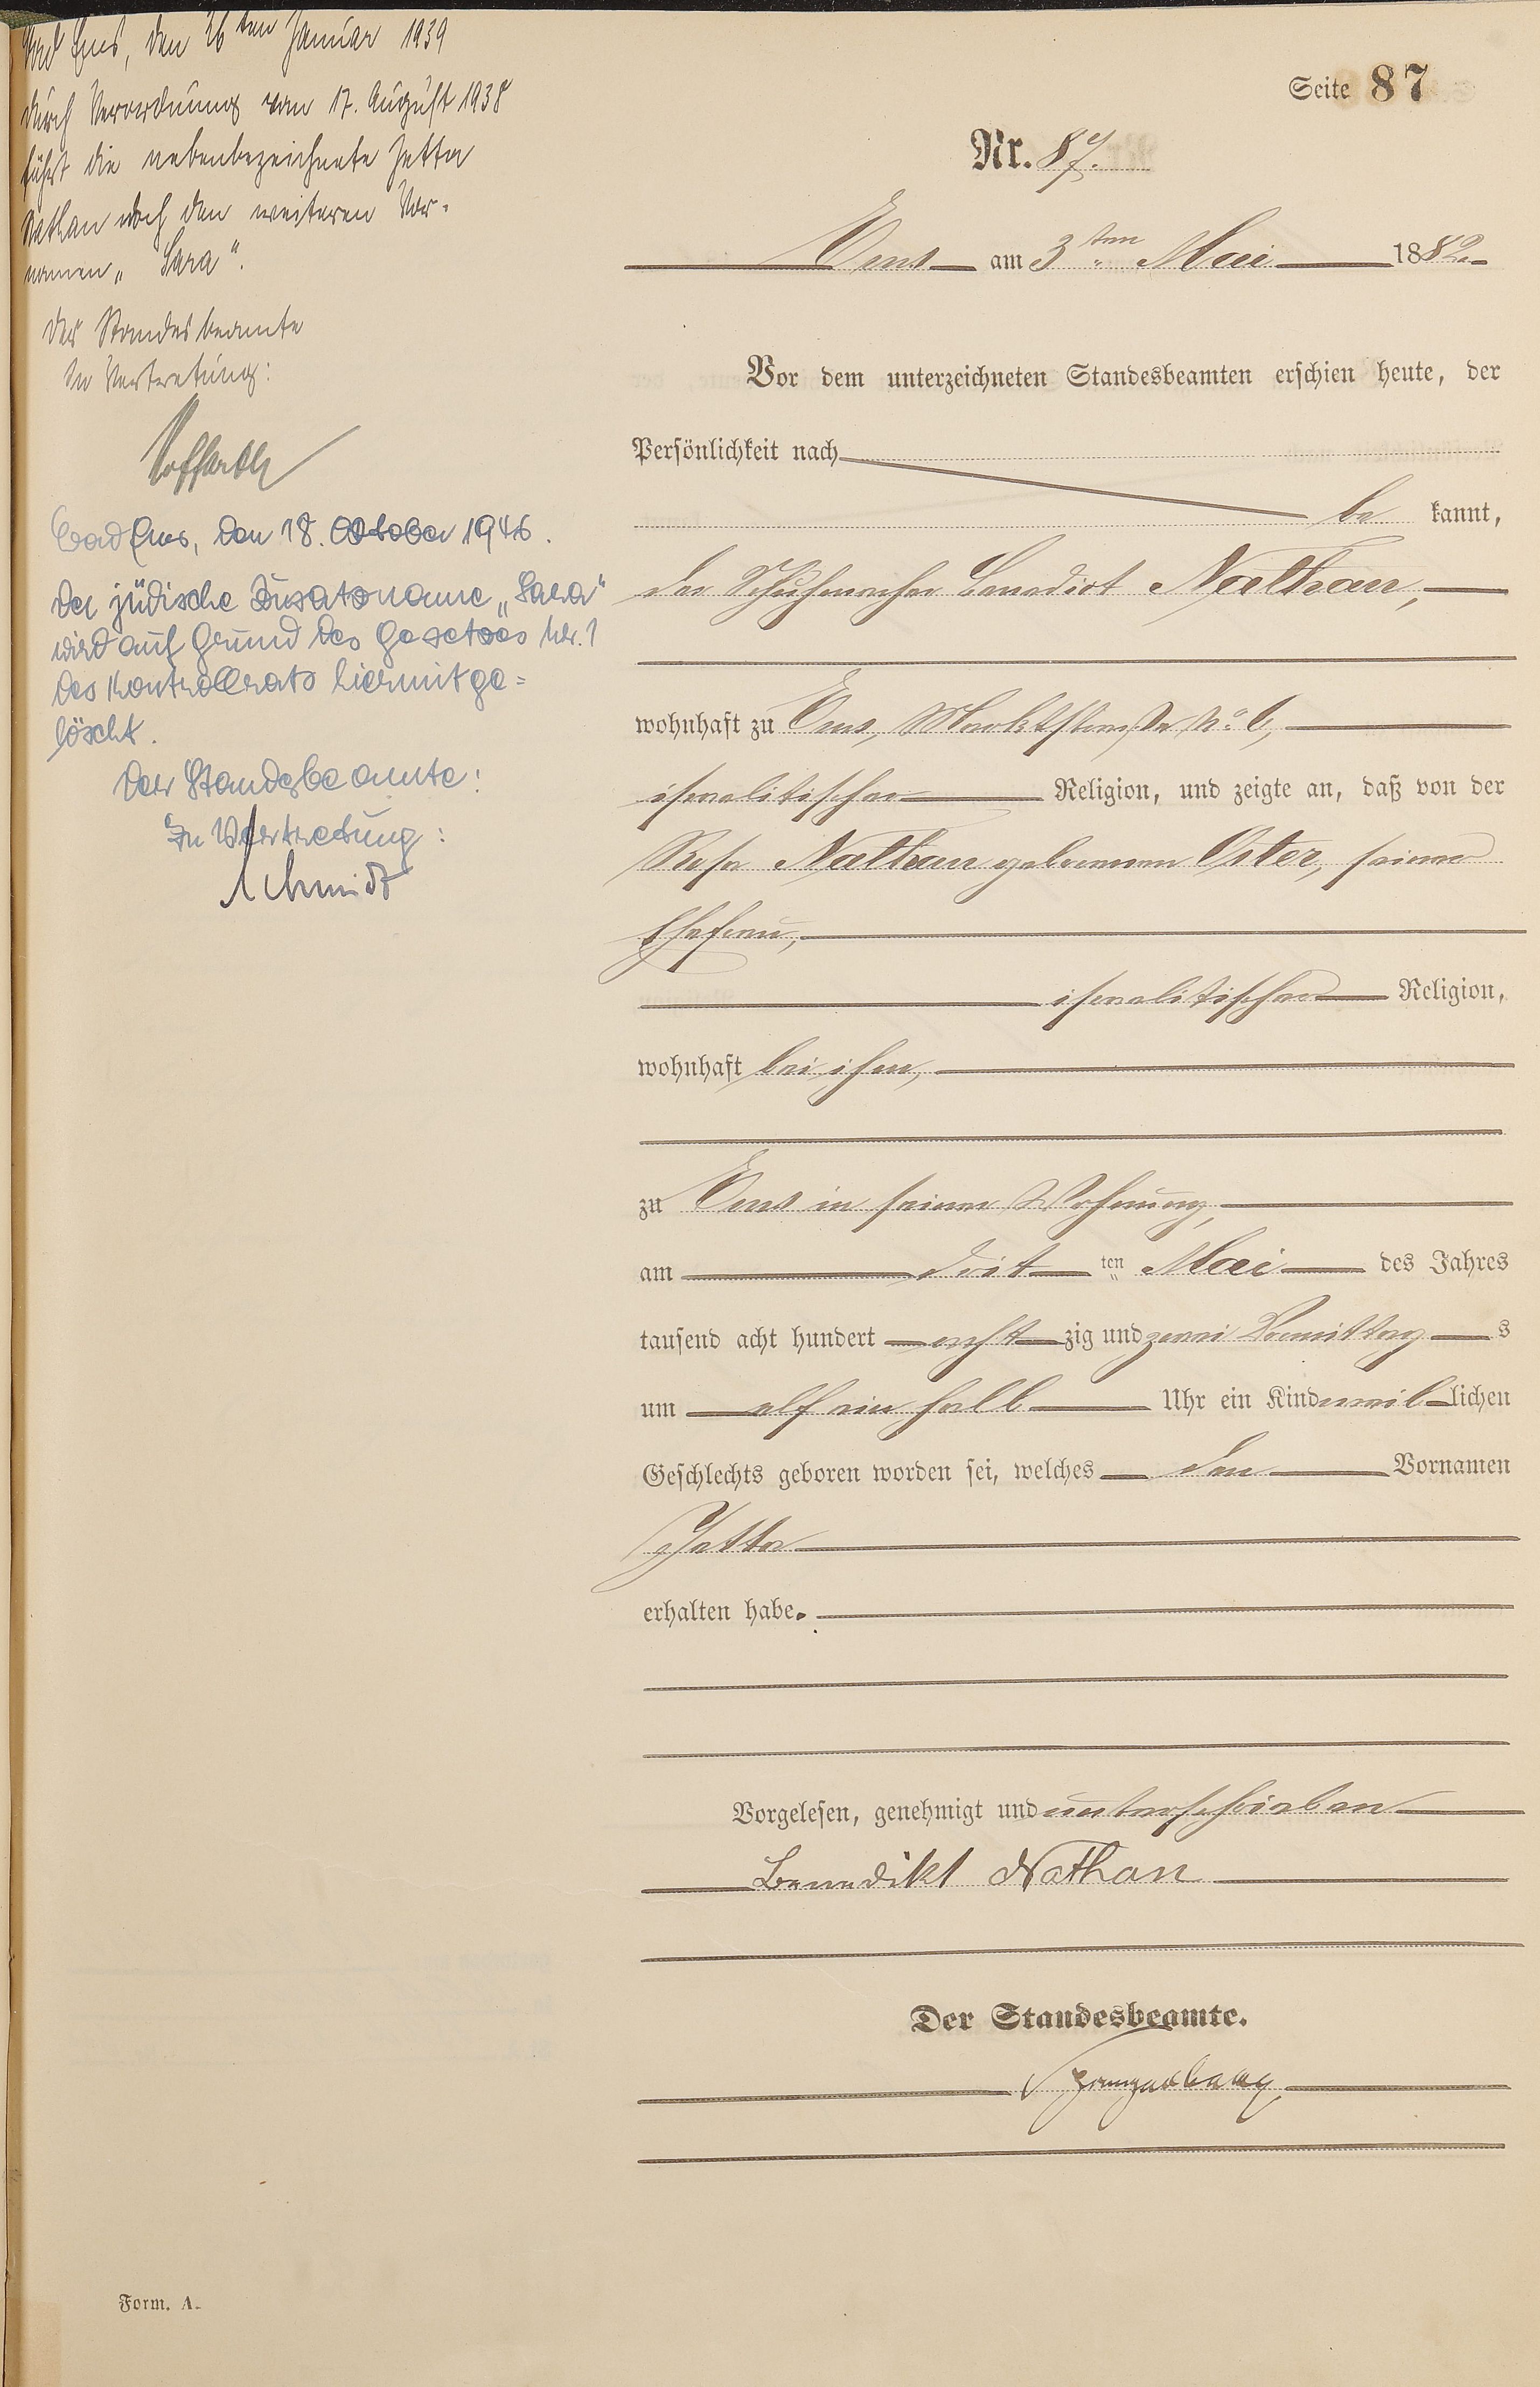 Bad Ems, den 26ten Januar 1939
Durch Verordnung vom 17. August 1938
führt die nebenbezeichnete Jetta
Nathan noch den weiteren Vor-
namen „Sara“.
Der Standesbeamte
In Vertretung:
Bad Ems, den 18. Oktober 1946.
Der jüdische Zusatzname „Sara“
wird auf Grund des Gesetzes Nr. 1
des Kontrollrats hiermit ge-
löscht.
Der Standesbeamte:
In Vertretung:
Schmidt
Seite 87
Nr. 87.
Ems am 3ten Mai 1882.
Vor dem unterzeichneten Standesbeamten erschien heute, der
Persönlichkeit nach
be kannt,
der Schuhmacher Benedict Nathan,
wohnhaft zu Ems, Marktstraße No. 6,
israelitischer Religion, und zeigte an, daß von der
Rosa Nathan geborenen Oster, seiner
Ehefrau,
israelitischer Religion,
wohnhaft bei ihm,
zu Ems in seiner Wohnung,
am drit ten Mai des Jahres
tausend acht hundert acht zig und zwei Vormittag s
um elf ein halb Uhr ein Kind weib lichen
Geschlechts geboren worden sei, welches den Vornamen
Jetta
erhalten habe.
Vorgelesen, genehmigt und unterschrieben
Benedikt Nathan
Der Standesbeamte.
Form. A.